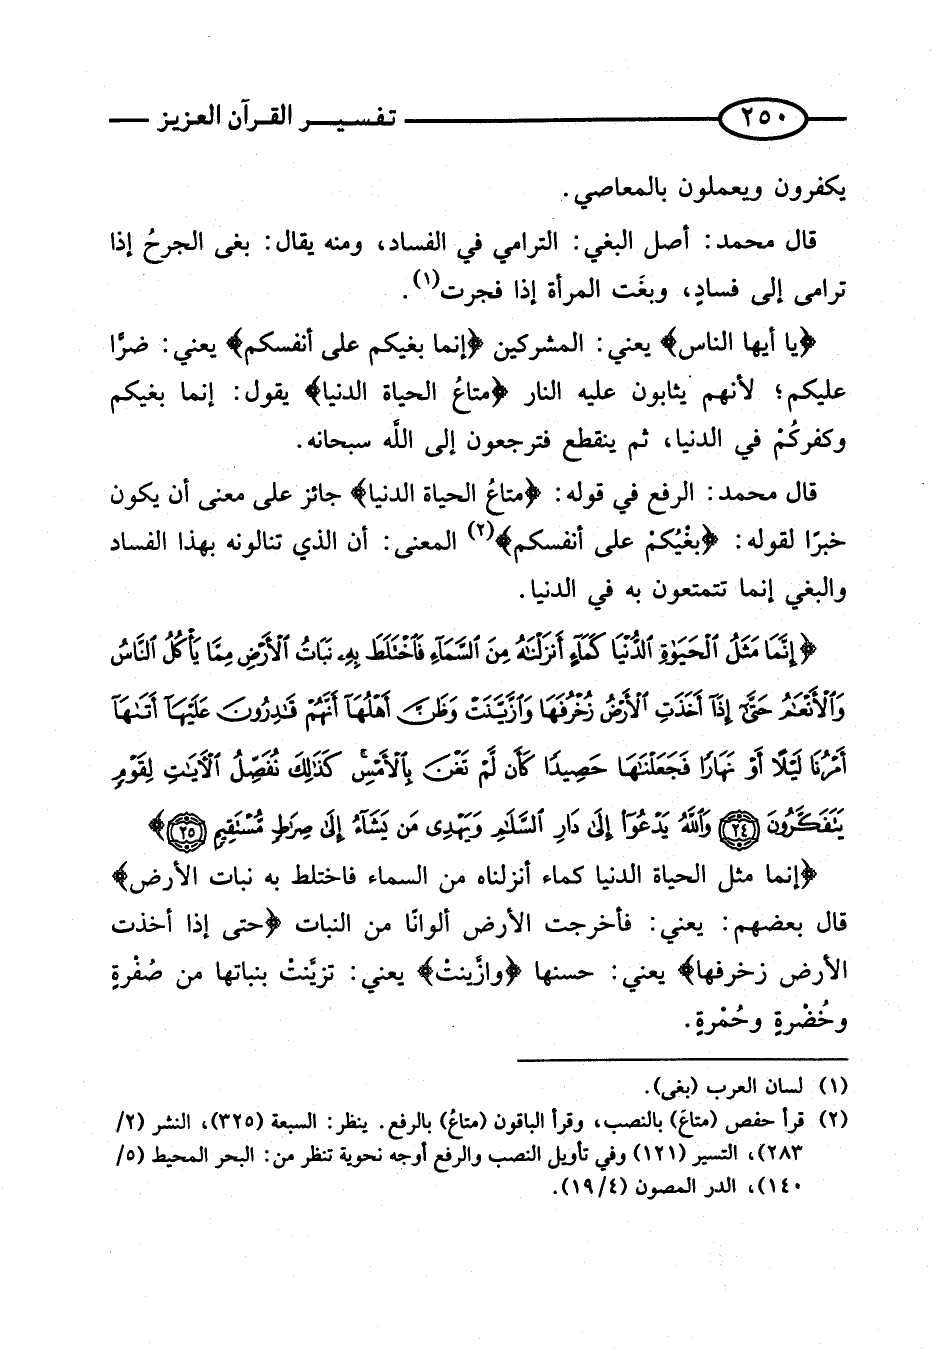 ٢٥٠ تفسير القرآن العزيز
يكفرون ويعملون بالمعاصي.
قال محمد: أصل البغي: الترامي في الفساد، ومنه يقال: بغى الجرحُ إذا
ترامى إلى فسادٍ، وبغَت المرأة إذا فجرت(١).
﴿يا أيها الناس﴾ يعني: المشركين ﴿إنما بغيكم على أنفسكم﴾ يعني: ضرًّا
عليكم؛ لأنهم يثابون عليه النار ﴿متاعُ الحياة الدنيا﴾ يقول: إنما بغيكم
وكفركُمْ في الدنيا، ثم ينقطع فترجعون إلى اللَّه سبحانه.
قال محمد: الرفع في قوله: ﴿متاعُ الحياة الدنيا﴾ جائز على معنى أن يكون
خبرًا لقوله: ﴿بغْيُكمْ على أنفسكم﴾(٢) المعنى: أن الذي تنالونه بهذا الفساد
والبغي إنما تتمتعون به في الدنيا.
﴿إِنَّمَا مَثَلُ ٱلْحَيَوٰةِ ٱلدُّنْيَا كَمَآءٍ أَنزَلْنَٰهُ مِنَ ٱلسَّمَآءِ فَٱخْتَلَطَ بِهِۦ نَبَاتُ ٱلْأَرْضِ مِمَّا يَأْكُلُ ٱلنَّاسُ
وَٱلْأَنْعَٰمُ حَتَّىٰٓ إِذَآ أَخَذَتِ ٱلْأَرْضُ زُخْرُفَهَا وَٱزَّيَّنَتْ وَظَنَّ أَهْلُهَآ أَنَّهُمْ قَٰدِرُونَ عَلَيْهَآ أَتَىٰهَآ
أَمْرُنَا لَيْلًا أَوْ نَهَارًا فَجَعَلْنَٰهَا حَصِيدًا كَأَن لَّمْ تَغْنَ بِٱلْأَمْسِ ۚ كَذَٰلِكَ نُفَصِّلُ ٱلْءَايَٰتِ لِقَوْمٍ
يَتَفَكَّرُونَ ٢٤ وَٱللَّهُ يَدْعُوٓا۟ إِلَىٰ دَارِ ٱلسَّلَٰمِ وَيَهْدِى مَن يَشَآءُ إِلَىٰ صِرَٰطٍ مُّسْتَقِيمٍ ٢٥﴾
﴿إنما مثل الحياة الدنيا كماء أنزلناه من السماء فاختلط به نبات الأرض﴾
قال بعضهم: يعني: فأخرجت الأرض ألوانًا من النبات ﴿حتى إذا أخذت
الأرض زخرفها﴾ يعني: حسنها ﴿وازَّينتْ﴾ يعني: تزيَّنتْ بنباتها من صُفْرةٍ
وخُضْرةٍ وحُمْرةٍ.
(١) لسان العرب (بغى).
(٢) قرأ حفص (متاعَ) بالنصب، وقرأ الباقون (متاعُ) بالرفع. ينظر: السبعة (٣٢٥)، النشر (٢/
٢٨٣)، التسير (١٢١) وفي تأويل النصب والرفع أوجه نحوية تنظر من: البحر المحيط (٥/
١٤٠)، الدر المصون (١٩/٤).